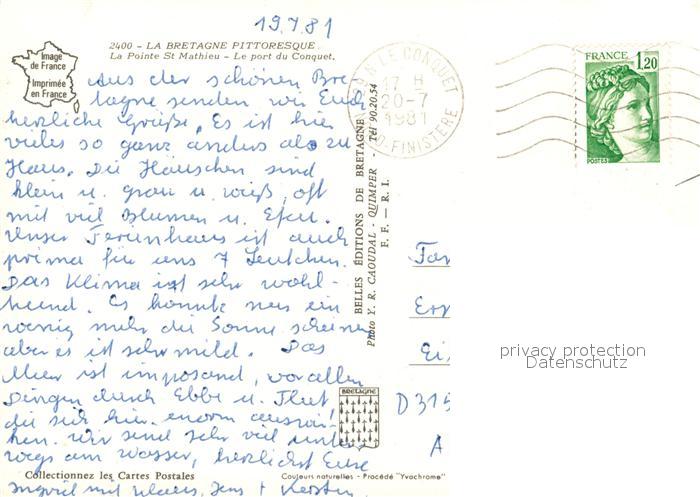 19.7.81
2400 - LA BRETAGNE PITTORESQUE.
La Pointe St Mathieu - Le port du Conquet.
Image
de France
Imprimée
en France
Aus der schönen Bre-
tagne senden wir Euch
herzliche Grüße. Es ist hier
vieles so ganz anders als zu
Haus. Die Häuschen sind
klein u. grau u. weiß, oft
mit viel Blumen u. Efeu.
Unser Ferienhaus ist auch
prima für uns 7 Leutchen.
Das Klima ist sehr wohl-
tuend. Es könnte nur ein
wenig mehr die Sonne scheinen
aber es ist sehr mild. Das
Meer ist imposand, vor allen
Dingen durch Ebbe u. Flut
die sich hier enorm auswir-
ken. Wir sind sehr viel unter-
wegs am Wasser, herzlichst Eure
Ingrid mit Klaus, Jens + Kerstin
Collectionnez les Cartes Postales
Couleurs naturelles - Procédé "Yvachrome"
BELLES ÉDITIONS DE BRETAGNE
Photo Y. R. CAOUDAL - QUIMPER - Tél 90.20.54
F. F. — R. I.
BRETAGNE
LE CONQUET
17 H
20-7
1981
FINISTERE
FRANCE
1,20
POSTES
Fam
Ei
D 315
A
privacy protection
Datenschutz